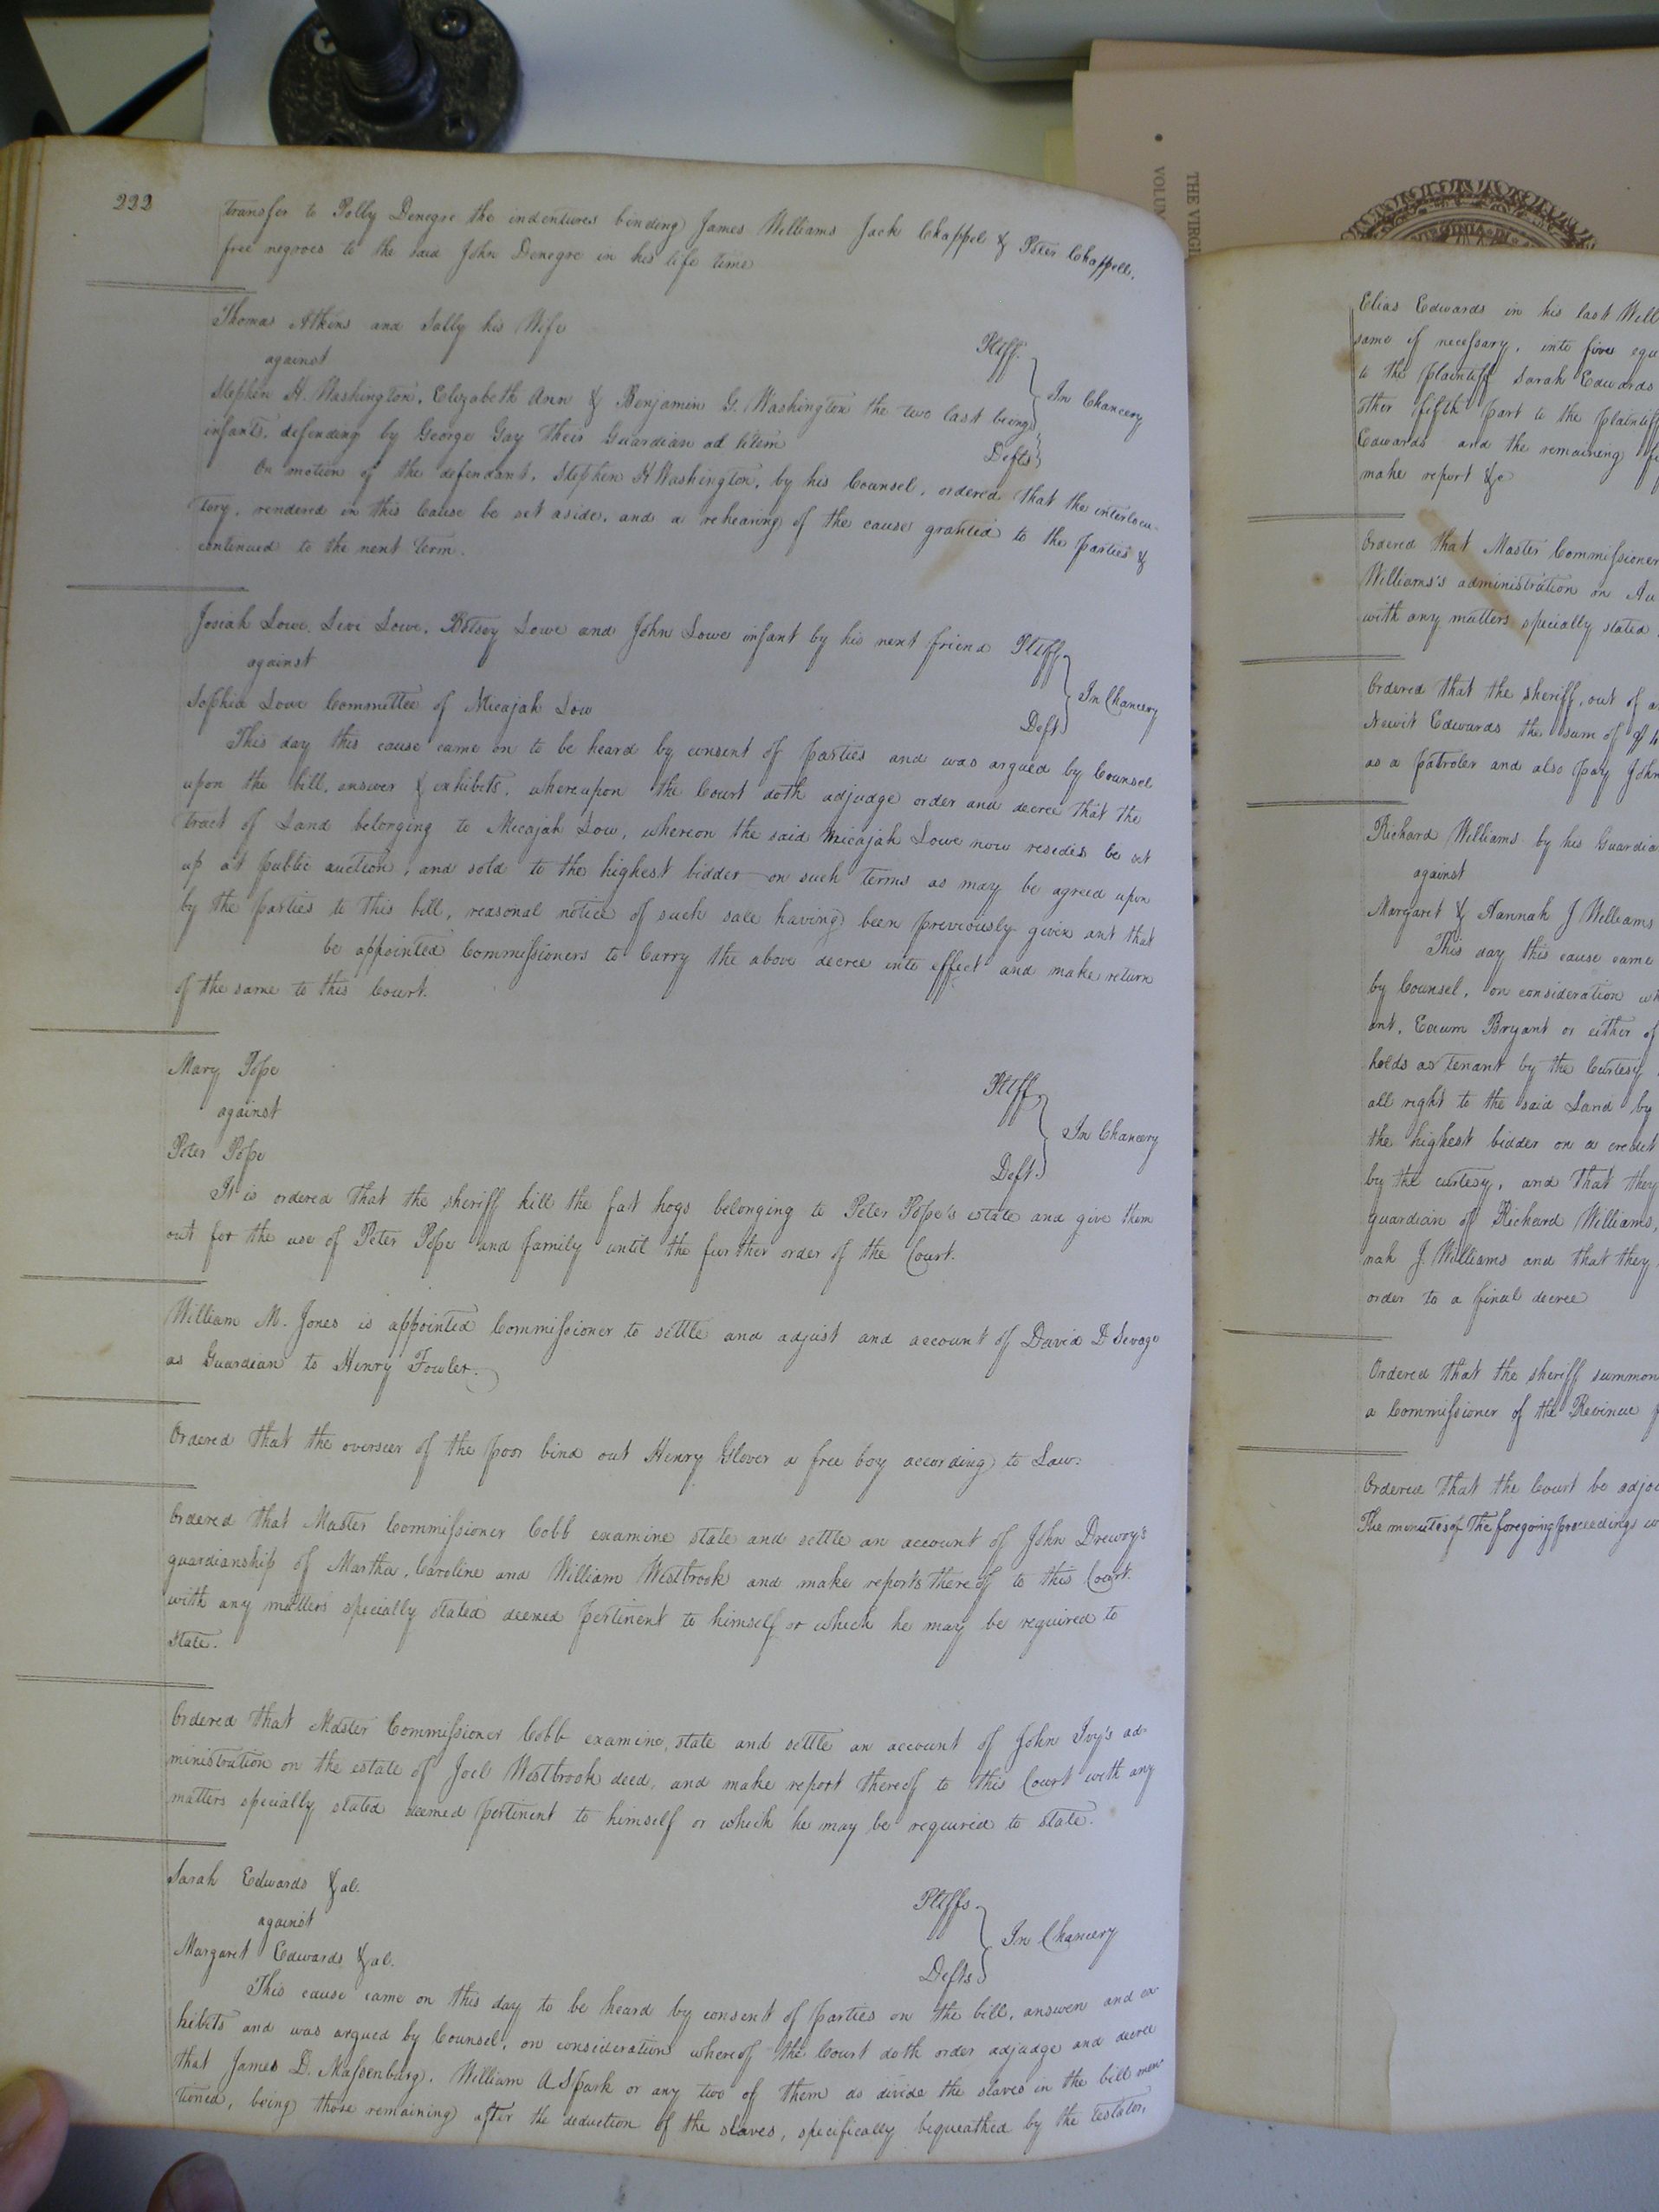 222
transfer to Polly Denegre the indentures binding James Williams Jack Chappel & Peter Chappell,
free negroes to the said John Denegre in his life time
Thomas Atkins and Sally his Wife
Pltff.
against
In Chancery
Stephen H. Washington, Elizabeth Ann & Benjamin G. Washington the two last being
infants, defending by George Gay their Guardian ad litem
Defts
On motion of the defendant, Stephen H Washington, by his Counsel, ordered that the interlocu-
tory, rendered in this Cause be set aside, and a rehearing of the cause granted to the parties &
continued to the next term.
Josiah Lowe, Levi Lowe, Betsey Lowe and John Lowe infant by his next friend Pltff
against
In Chancery
Sophia Lowe Committee of Micajah Low
Deft
This day this cause came on to be heard by consent of parties and was argued by Counsel
upon the bill, answer & exhibits, whereupon the Court doth adjudge order and decree that the
tract of Land belonging to Micajah Low, whereon the said Micajah Lowe now resides be set
up at public auction, and sold to the highest bidder on such terms as may be agreed upon
by the parties to this bill, reasonal notice of such sale having been previously given ant that
be appointed Commissioners to Carry the above decree into effect and make return
of the same to this Court.
Mary Pope
Pltff
against
In Chancery
Peter Pope
Deft
It is ordered that the sheriff kill the fat hogs belonging to Peter Pope's estate and give them
out for the use of Peter Pope and family until the further order of the Court.
William M. Jones is appointed Commissioner to settle and adjust and account of David D Sevage
as Guardian to Henry Fowler.
Ordered that the overseer of the poor bind out Henry Glover a free boy according to Law.
Ordered that Master Commissioner Cobb examine state and settle an account of John Drewry's
guardianship of Martha, Caroline and William Westbrook and make reports thereof to this Court.
with any matters specially stated deemed pertinent to himself or which he may be required to
state.
Ordered that Master Commissioner Cobb examine, state and settle an account of John Ivy's ad-
ministration on the estate of Joel Westbrook decd, and make report thereof to this Court with any
matters specially stated deemed pertinent to himself or which he may be required to state.
Sarah Edwards & al.
Pltffs
against
In Chancery
Margaret Edwards & al.
Defts
This cause came on this day to be heard by consent of parties on the bill, answer and ex-
hibits and was argued by Counsel, on consideration whereof the Court doth order adjudge and decree
that James D. Massenburg, William A. Spark or any two of them do divide the slaves in the bill men-
tioned, being those remaining after the deduction of the slaves, specifically bequeathed by the testator,
THE VIRGI
VOLUM
Elias Edwards in his last Will
same if necessary, into five equ
to the plaintiff Sarah Edwards
other fifth part to the plaintiff
Edwards and the remaining fi
make report &c
Ordered that Master Commissioner
Williams's administration on Au
with any matters specially stated
Ordered that the sheriff, out of a
Newit Edwards the sum of
as a patroler and also pay John
Richard Williams by his Guardia
against
Margaret & Hannah J Williams
This day this cause came
by Counsel, on consideration wh
ant, Exum Bryant or either of
holds as tenant by the Curtesy
all right to the said Land by
the highest bidder on a credit
by the curtesy, and that they
guardian of Richard Williams,
nah J. Williams and that they
order to a final decree
Ordered that the sheriff summon
a Commissioner of the Revenue
Ordered that the Court be adjo
The minutes of the foregoing proceedings w